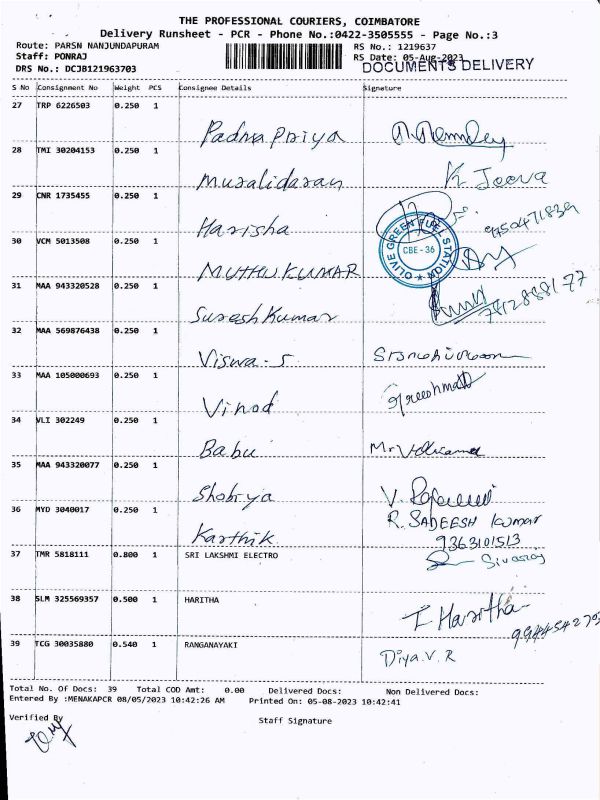 THE PROFESSIONAL COURIERS, COIMBATORE
Delivery Runsheet - PCR - Phone No.:0422-3505555 - Page No.:3
Route: PARSN NANJUNDAPURAM RS No.: 1219637
Staff: PONRAJ RS Date: 05-Aug-2023
DRS No.: DCJB121963703 DOCUMENTS DELIVERY
S No Consignment No Weight PCS Consignee Details Signature
27 TRP 6226503 0.250 1
Padma priya
28 TMI 30204153 0.250 1
Muralidaran K. Jeeva
29 CNR 1735455 0.250 1
Harisha
OLIVE GREEN FUEL STATION
CBE - 36
30 VCM 5013508 0.250 1
MUTHU KUMAR
31 MAA 943320528 0.250 1
Suresh Kumar
32 MAA 569876438 0.250 1
Viswa - S
33 MAA 105000693 0.250 1
Vinod
34 VLI 302249 0.250 1
Babu
35 MAA 943320077 0.250 1
36 MYD 3040017 0.250 1
R. SADEESH kumar
Karthik 9363101513
37 TMR 5818111 0.800 1 SRI LAKSHMI ELECTRO
Sivaraj
38 SLM 325569357 0.500 1 HARITHA
Haritha
39 TCG 30035880 0.540 1 RANGANAYAKI
Diya. V. R
Total No. Of Docs: 39 Total COD Amt: 0.00 Delivered Docs: Non Delivered Docs:
Entered By :MENAKAPCR 08/05/2023 10:42:26 AM Printed On: 05-08-2023 10:42:41
Verified By Staff Signature